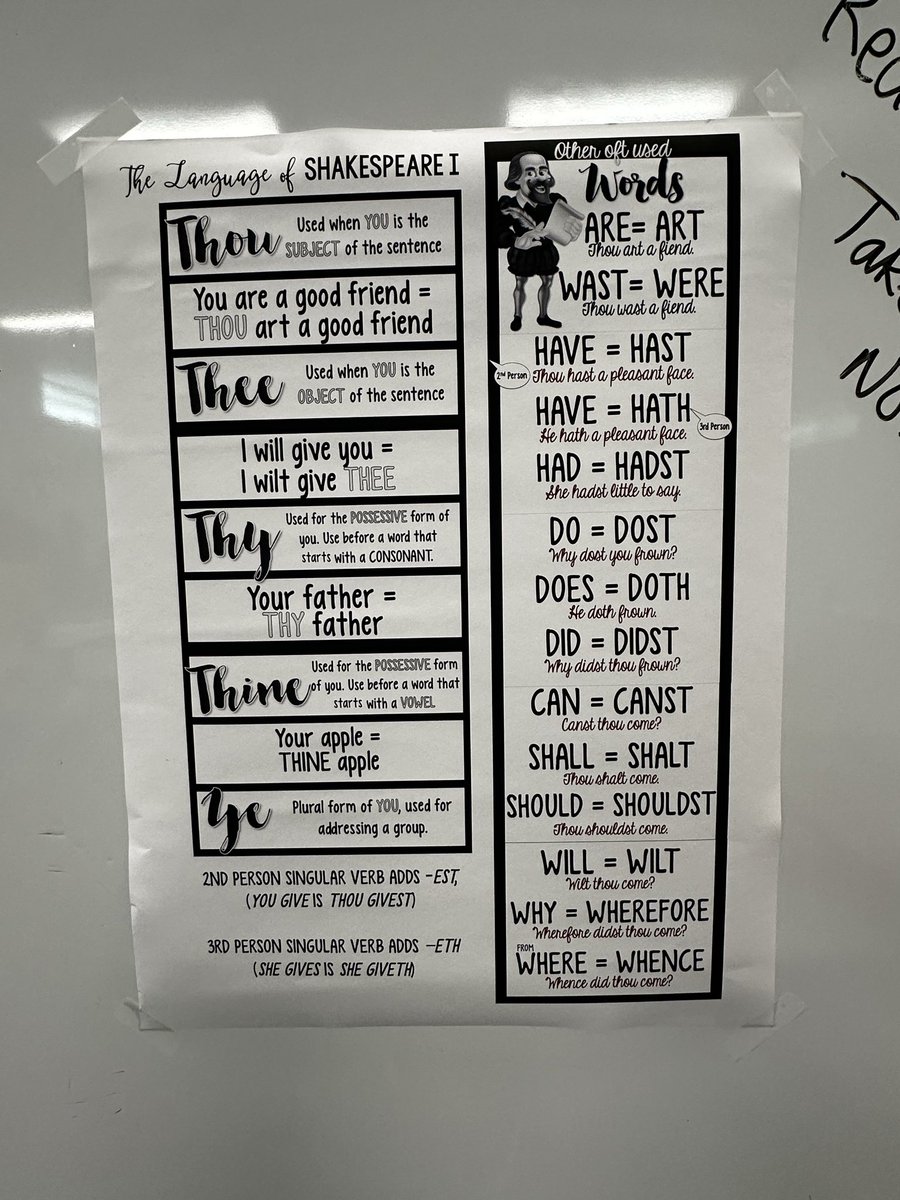 The Language of SHAKESPEARE I
Thou
Used when YOU is the
SUBJECT of the sentence
You are a good friend =
THOU art a good friend
Thee
Used when YOU is the
OBJECT of the sentence
I will give you =
I wilt give THEE
Thy
Used for the POSSESSIVE form of
you. Use before a word that
starts with a CONSONANT.
Your father =
THY father
Thine
Used for the POSSESSIVE form
of you. Use before a word that
starts with a VOWEL
Your apple =
THINE apple
Ye
Plural form of YOU, used for
addressing a group.
2ND PERSON SINGULAR VERB ADDS -EST,
(YOU GIVE IS THOU GIVEST)
3RD PERSON SINGULAR VERB ADDS -ETH
(SHE GIVES IS SHE GIVETH)
Other oft used
Words
ARE= ART
Thou art a fiend.
WAST= WERE
Thou wast a fiend.
HAVE = HAST
2nd Person
Thou hast a pleasant face.
HAVE = HATH
3rd Person
He hath a pleasant face.
HAD = HADST
She hadst little to say.
DO = DOST
Why dost you frown?
DOES = DOTH
He doth frown.
DID = DIDST
Why didst thou frown?
CAN = CANST
Canst thou come?
SHALL = SHALT
Thou shalt come.
SHOULD = SHOULDST
Thou shouldst come.
WILL = WILT
Wilt thou come?
WHY = WHEREFORE
Wherefore didst thou come?
FROM
WHERE = WHENCE
Whence did thou come?